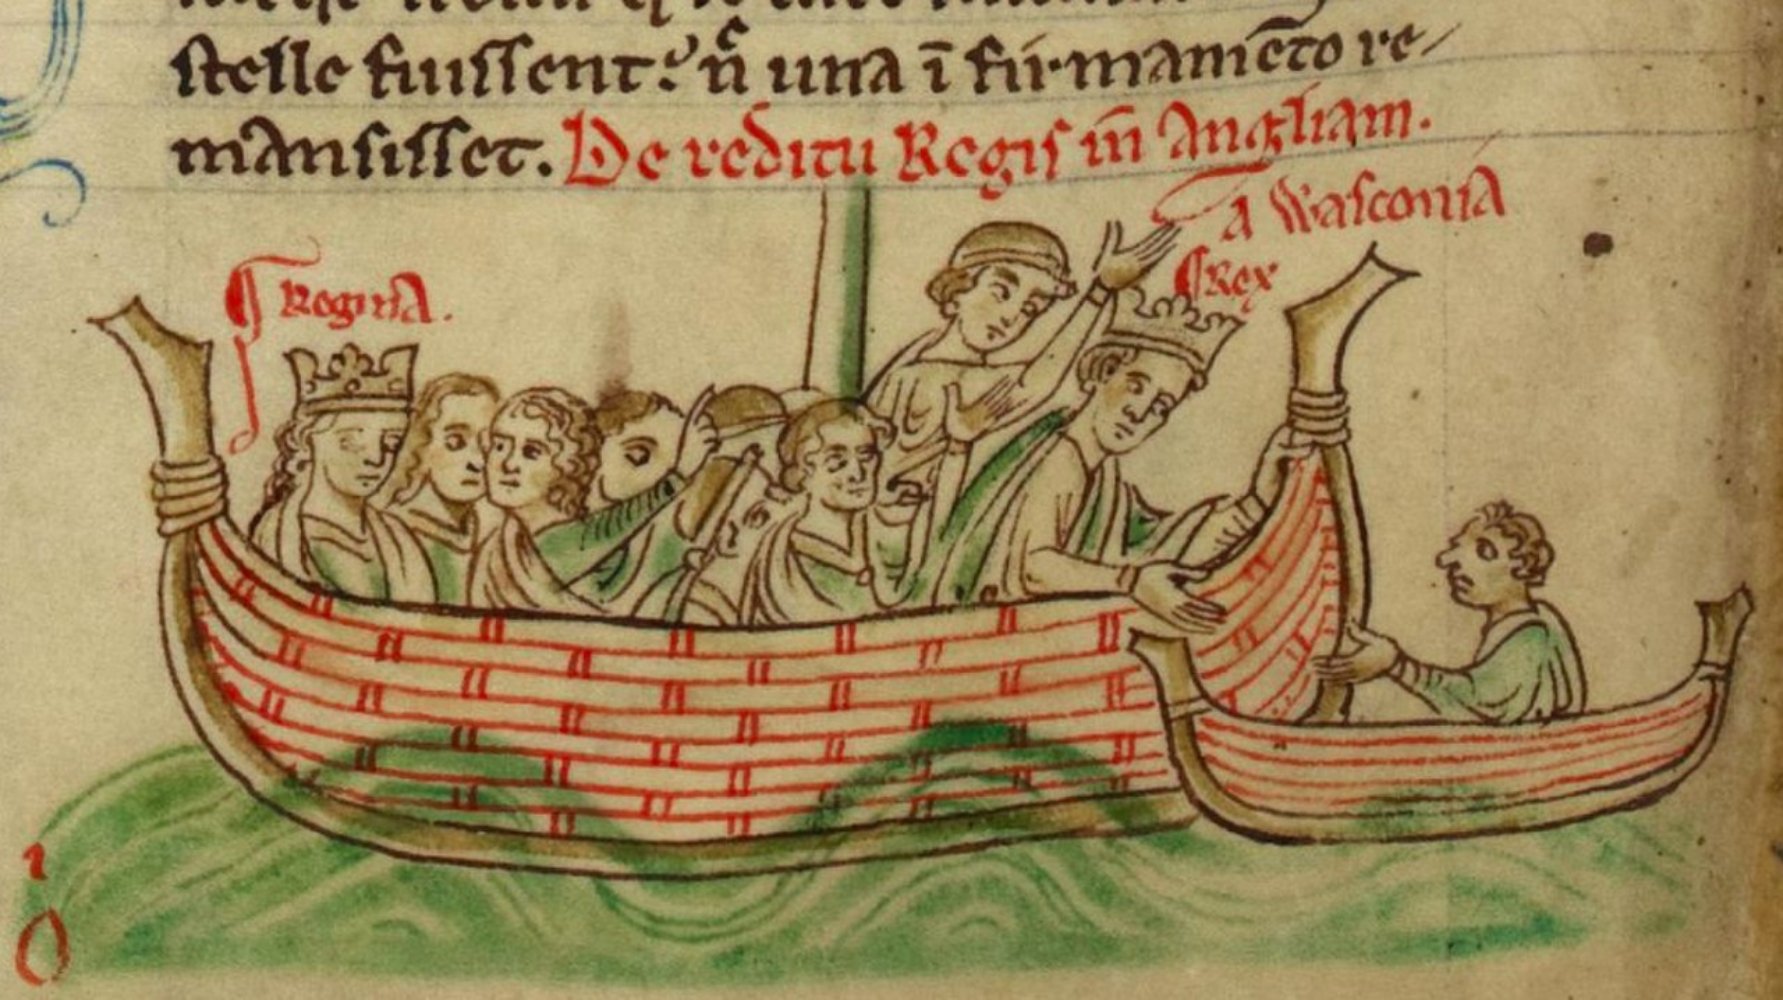 stelle fuissent: n̄ una ī firmamēto re-
mansisset. De reditu Regis in Angliam.
a Wasconia
¶ Regina.
¶ Rex